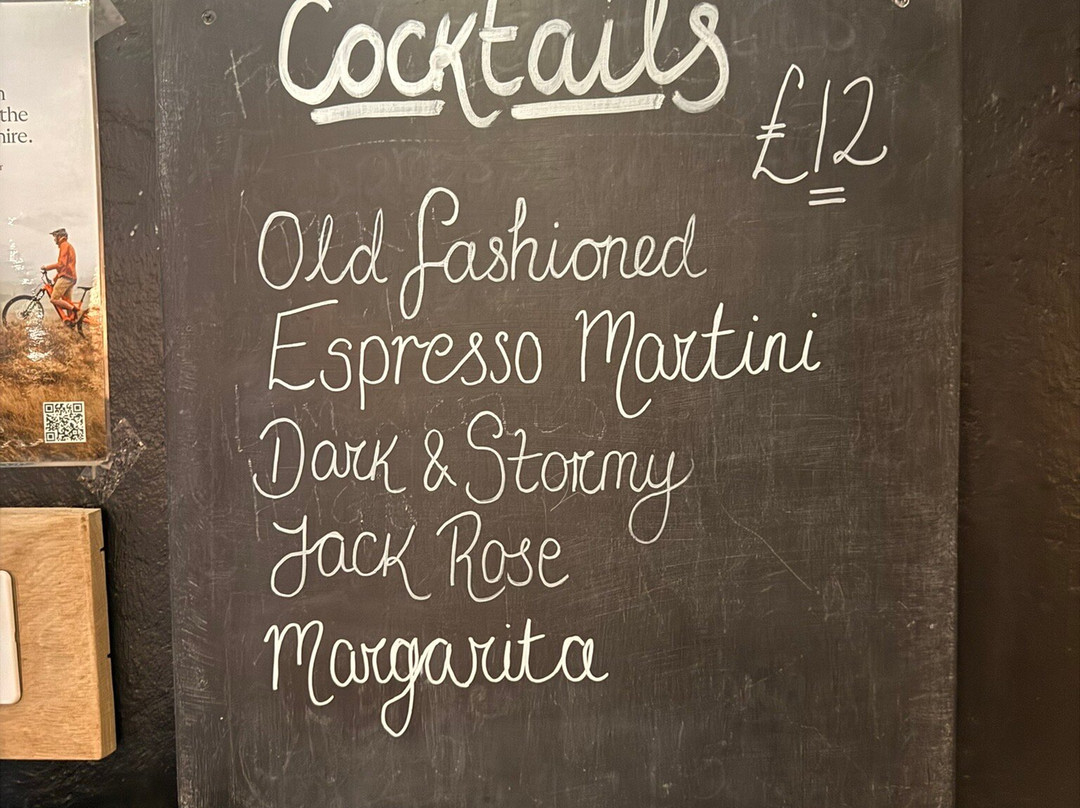 Cocktails
£12
Old fashioned
Espresso Martini
Dark & Stormy
Jack Rose
Margarita
the